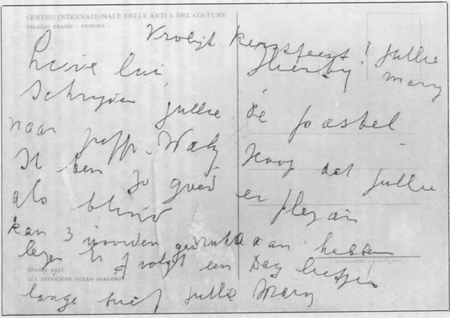 CENTRO INTERNAZIONALE DELLE ARTI E DEL COSTUME
PALAZZO GRASSI - VENEZIA
Vrolijk Kerstfeest! Jullie
Mary
Lieve lui
Schrijven jullie
naar
Ik ben zo goed
als blind
kan 3 woorden
lezen Er volgt een
lange brief Jullie Mary
Hierbij
de pastel
Hoop dat jullie
er plezier
aan hebben
Dag liefjes!